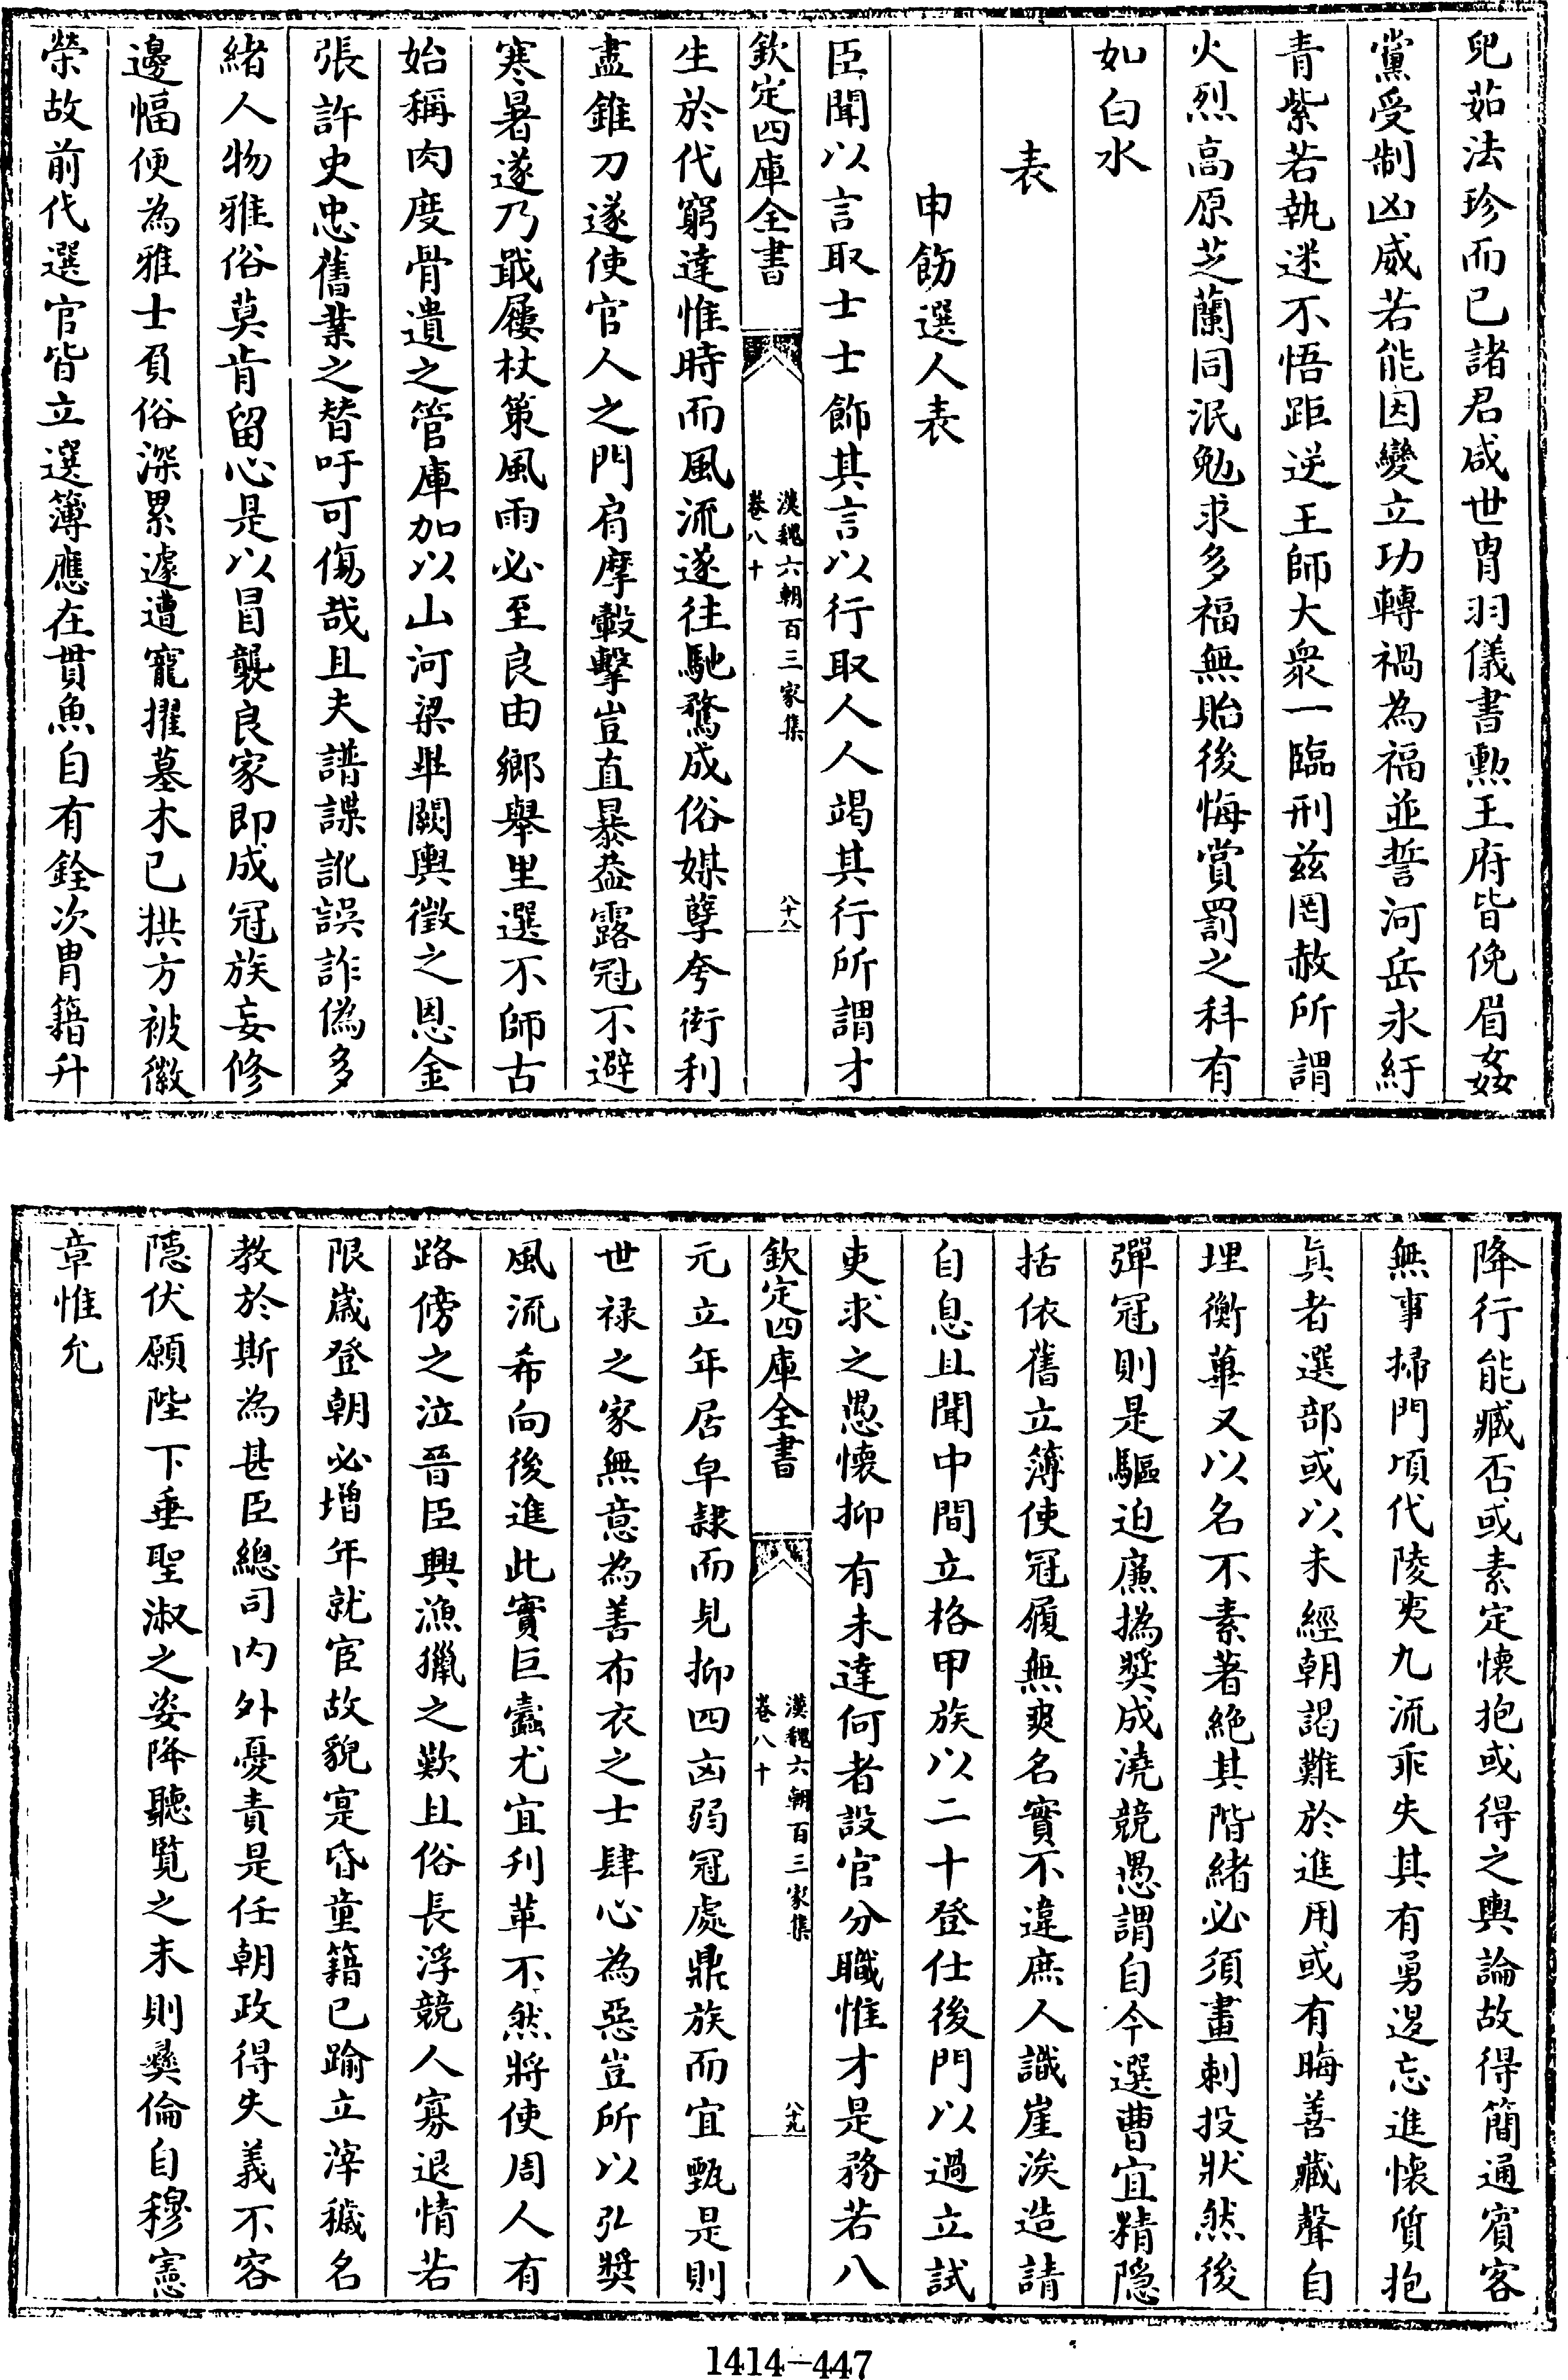 兒茹法珍而已諸君咸世胄羽儀書勲王府皆俛眉姦
黨受制凶威若能因變立功轉禍為福並誓河岳永紆
青紫若執迷不悟距逆王師大衆一臨刑兹罔赦所謂
火烈高原芝蘭同泯勉求多福無貽後悔賞罰之科有
如白水
表
申飭選人表
臣聞以言取士士飾其言以行取人人竭其行所謂才
欽定四庫全書
漢魏六朝百三家集
卷八十
八十八
生於代窮達惟時而風流遂往馳騖成俗媒孽夸衒利
盡錐刀遂使官人之門肩摩轂擊豈直暴葢露冠不避
寒暑遂乃戢屨杖策風雨必至良由鄉舉里選不師古
始稱肉度骨遺之管庫加以山河梁畢闕輿徵之恩金
張許史忠舊業之替吁可傷哉且夫譜諜訛誤詐偽多
緒人物雅俗莫肯留心是以冒襲良家即成冠族妄修
邊幅便為雅士負俗深累遽遭寵擢墓木已拱方被徽
榮故前代選官皆立選簿應在貫魚自有銓次胄籍升
降行能臧否或素定懷抱或得之輿論故得簡通賓客
無事掃門頃代陵夷九流乖失其有勇退忘進懷質抱
真者選部或以未經朝謁難於進用或有晦善藏聲自
埋衡蓽又以名不素著絶其階緒必須畫刺投狀然後
彈冠則是驅迫廉撝奨成澆競愚謂自今選曹宜精隠
括依舊立簿使冠履無爽名實不違庶人識崖涘造請
自息且聞中間立格甲族以二十登仕後門以過立試
吏求之愚懷抑有未達何者設官分職惟才是務若八
欽定四庫全書
漢魏六朝百三家集
卷八十
八十九
元立年居皁隷而見抑四凶弱冠處鼎族而宜甄是則
世禄之家無意為善布衣之士肆心為惡豈所以弘奨
風流希向後進此實巨蠧尤宜刋革不然將使周人有
路傍之泣晉臣興漁獵之歎且俗長浮競人寡退情若
限嵗登朝必增年就宦故貌寔昏童籍已踰立滓穢名
教於斯為甚臣總司内外憂責是任朝政得失義不容
隠伏願陛下垂聖淑之姿降聽覧之末則彝倫自穆憲
章惟允
1414—447